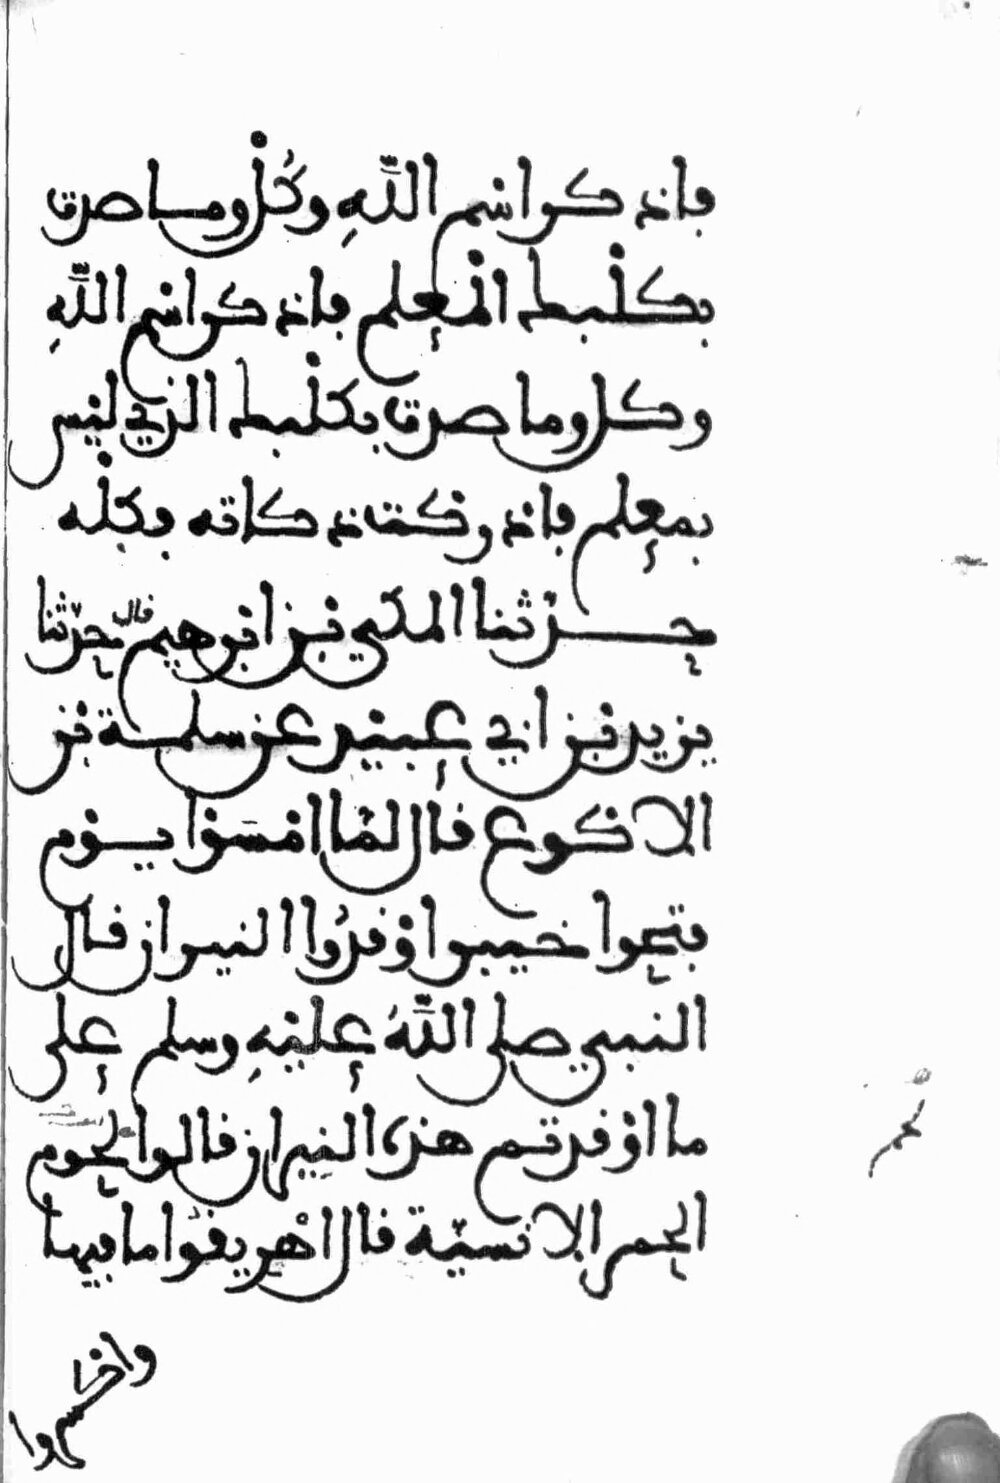 فاذكر اسم اللّٰهِ وكُلْ وما صدت
بكلْبك المُعلم فاذكر اسم اللّٰهِ
وكل وما صدت بكلْبك الذي ليس
بمعلم فادركت ذكاته فكلْه
حدّثنا المكي بن ابرهيم قال حدّثنا
يزيد بن ابي عبيد عن سلمة بن
الاكوع قال لمّا امْسَوْا يوم
فتحوا خيبر اوْقدُوا النيران قال
النبي صلى اللّٰهُ عليْهِ وسلم على
ما اوْقدتم هذه النيران قالوا لحوم
الحمر الانسيّة قال اهْريقوُا ما فيها
واكسروا
لحم